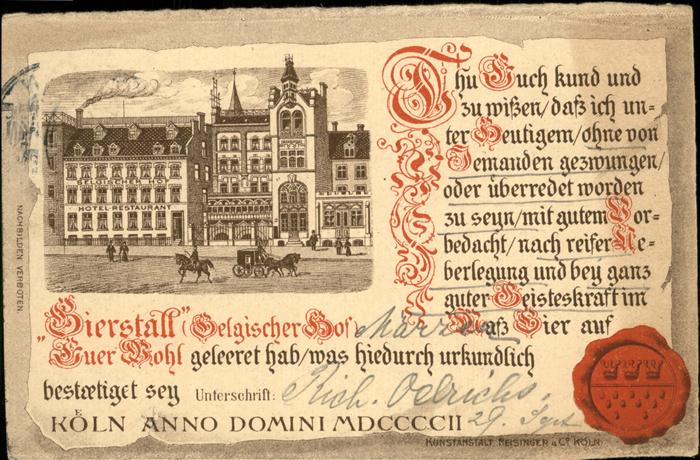 Thu Euch kund und
zu wißen/daß ich un=
ter Heutigem/ohne von
Jemanden gezwungen/
oder überredet worden
zu seyn/mit gutem Vor-
bedacht/nach reifer Ue-
berlegung und bey ganz
guter Geisteskraft im
"Bierstall" (Belgischer Hof) Maß Bier auf
"Euer Wohl geleeret hab/was hiedurch urkundlich
bestætiget sey Unterschrift: Rich. Oelrichs.
KOELN ANNO DOMINI MDCCCCII 29. Sept
KUNSTANSTALT REISINGER & Co KÖLN.
NACHBILDEN VERBOTEN.
HOTEL-RESTAURANT